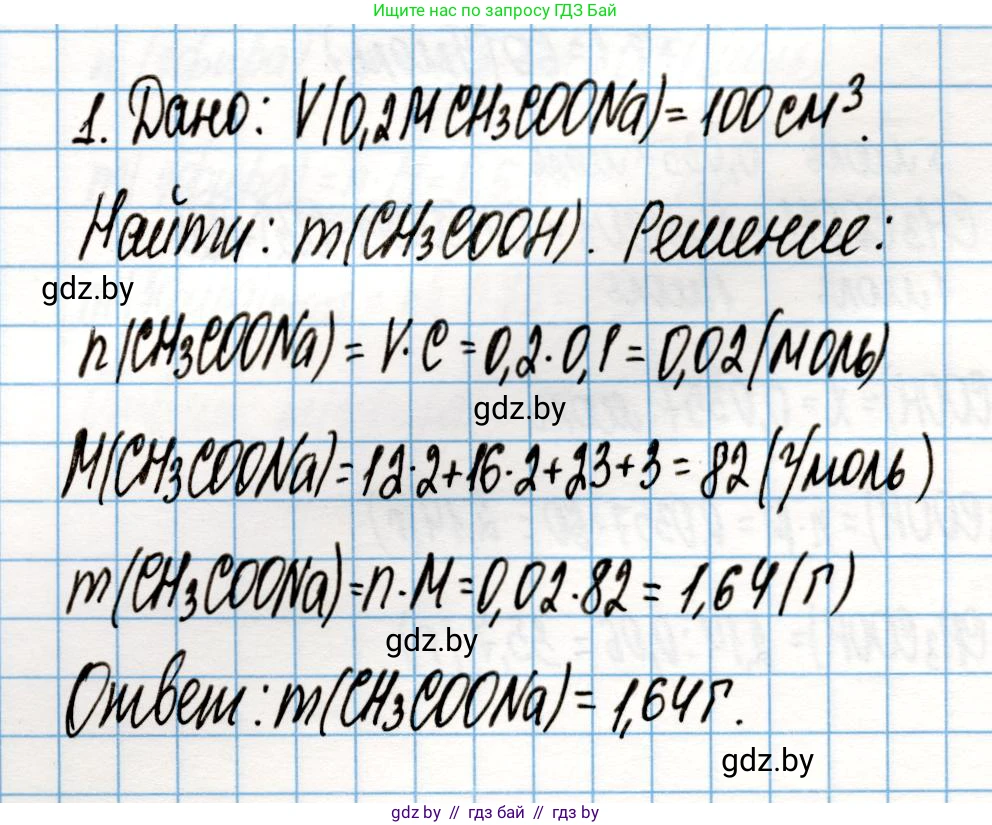 Ищите нас по запросу ГДЗ Бай
1. Дано: V(0,2М CH₃COONa) = 100 см³.
Найти: m(CH₃COOH). Решение:
gdz.by
n(CH₃COONa) = V·C = 0,2·0,1 = 0,02 (моль)
gdz.by
M(CH₃COONa) = 12·2+16·2+23+3 = 82 (г/моль)
m(CH₃COONa) = n·M = 0,02·82 = 1,64 (г)
gdz.by
Ответ: m(CH₃COONa) = 1,64 г.
gdz.by
gdz.by // гдз бай // gdz.by